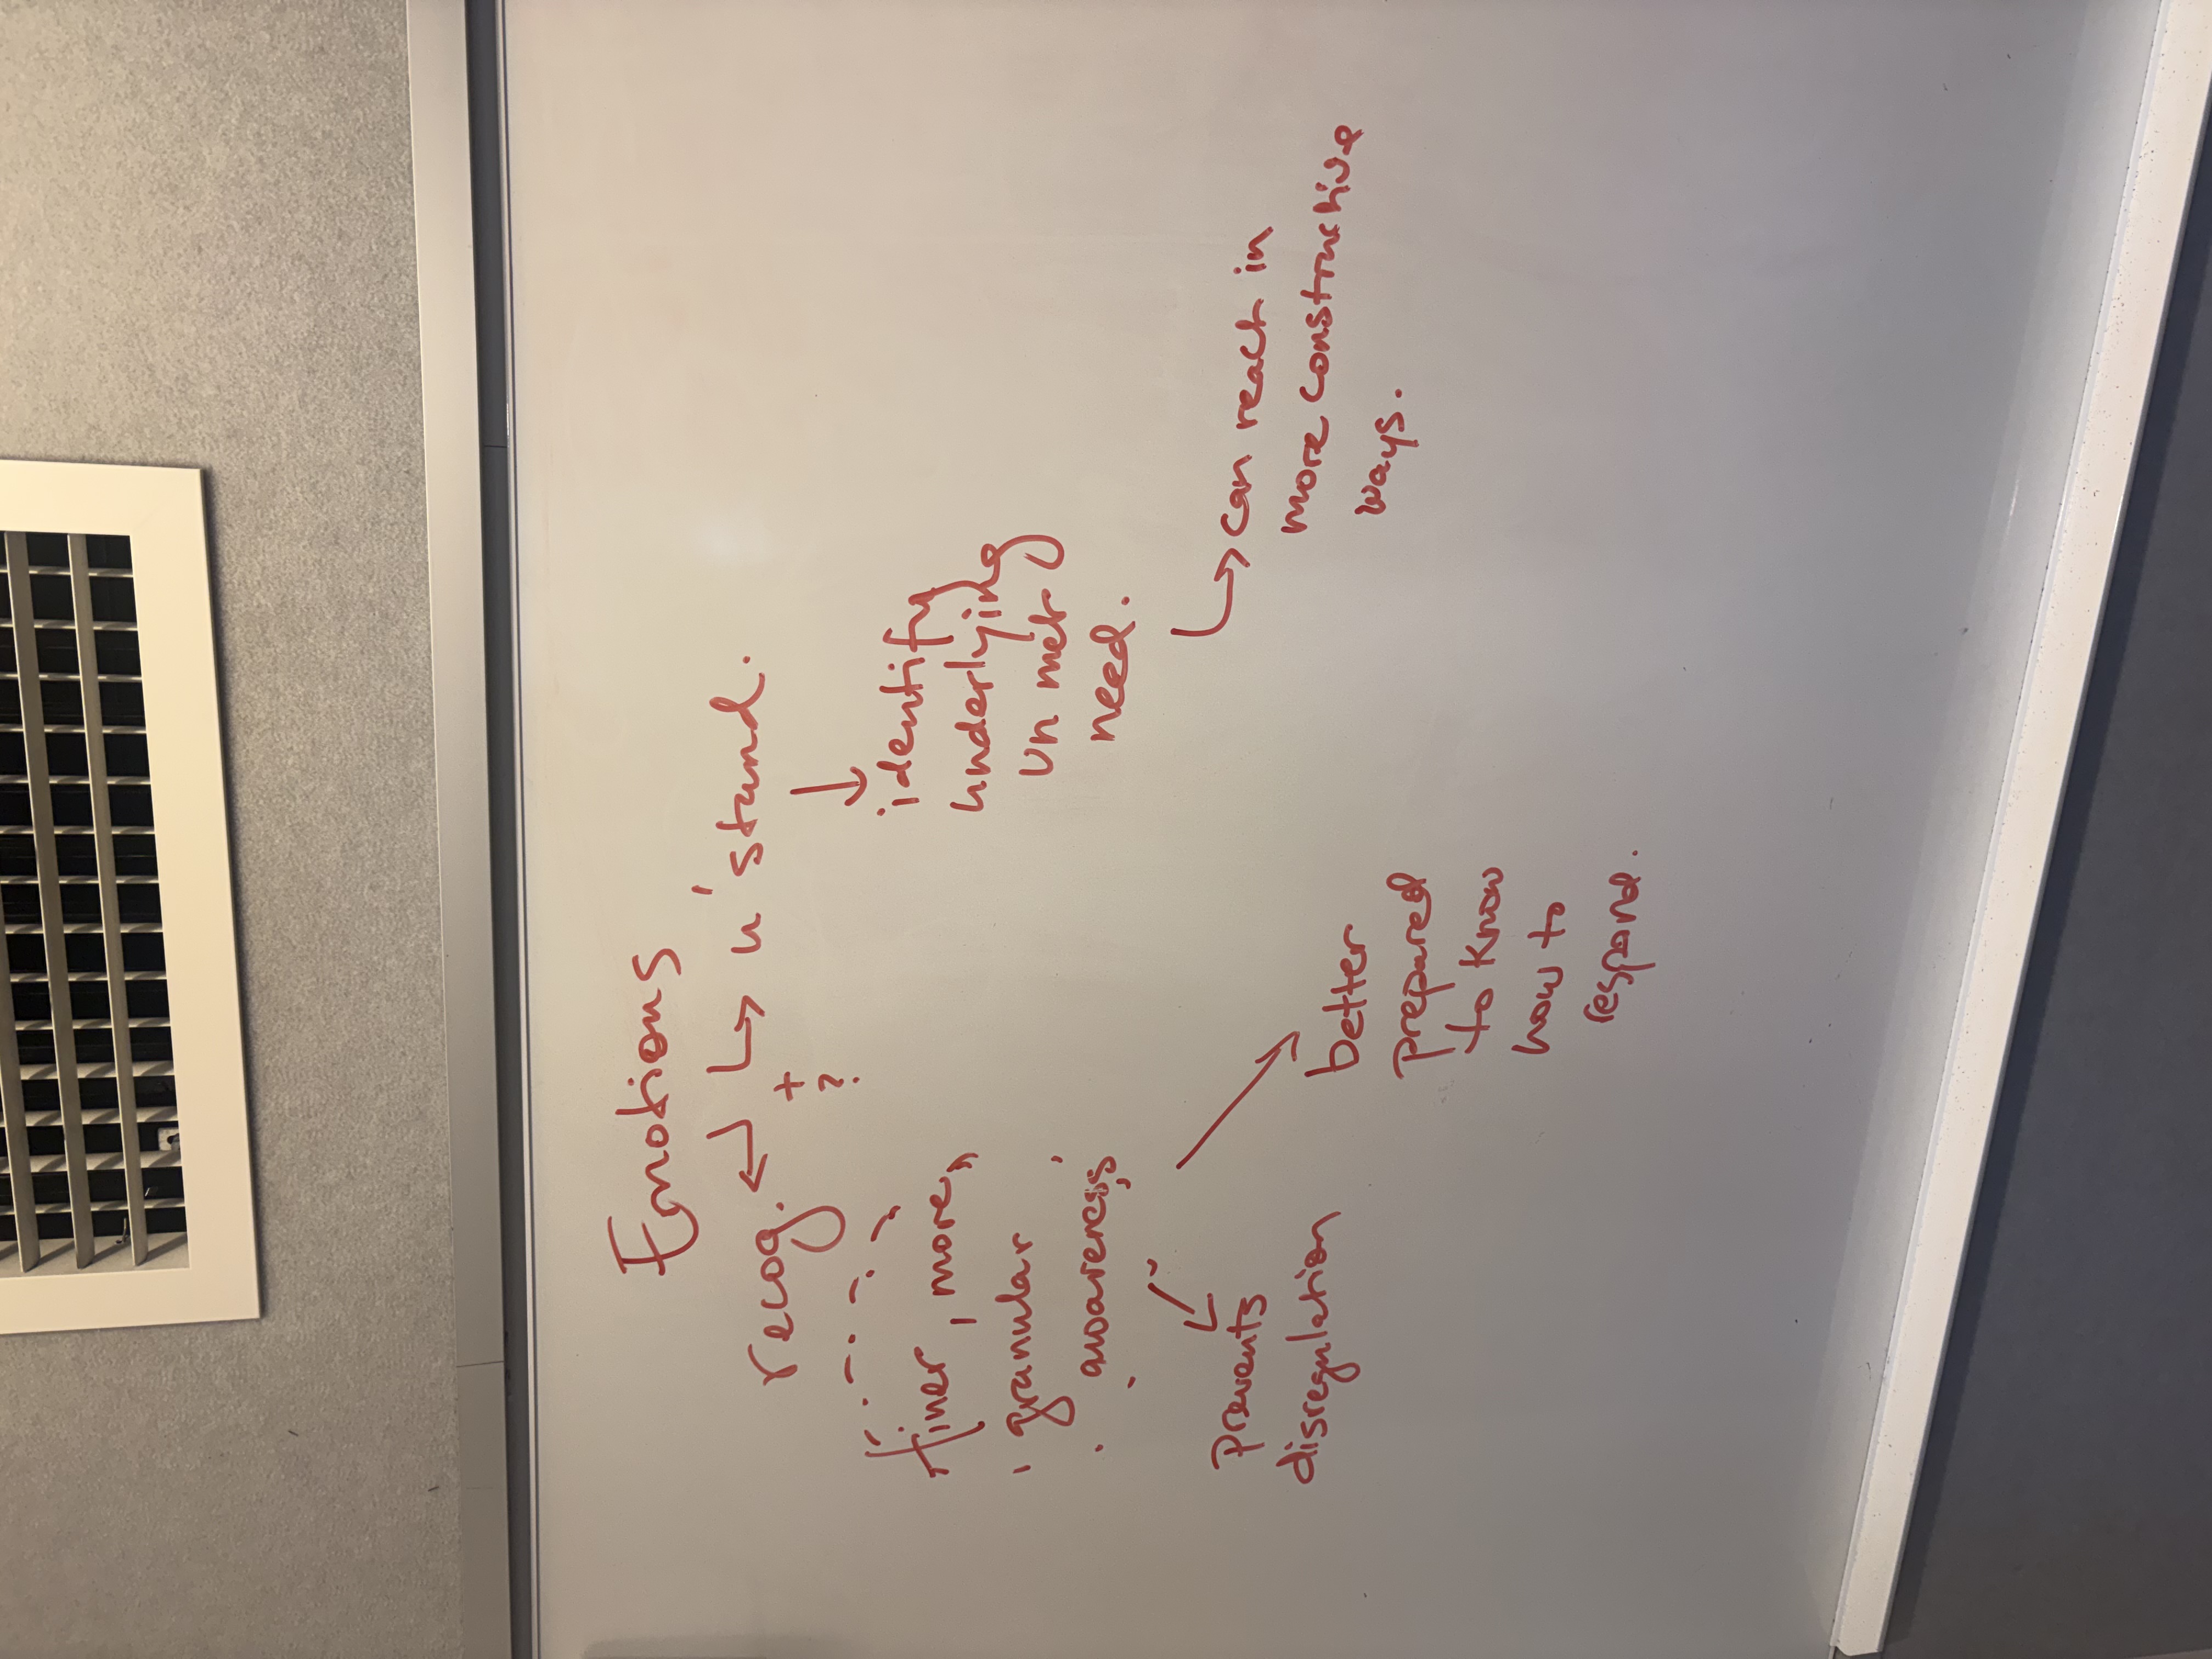 Emotions
recog. ↵ ↳ u'stand.
+
?
finer, more,
granular
awareness
prevents
disregulation
better
prepared
to know
how to
respond.
↓
identify
underlying
un met
need.
↳ can react in
more constructive
ways.